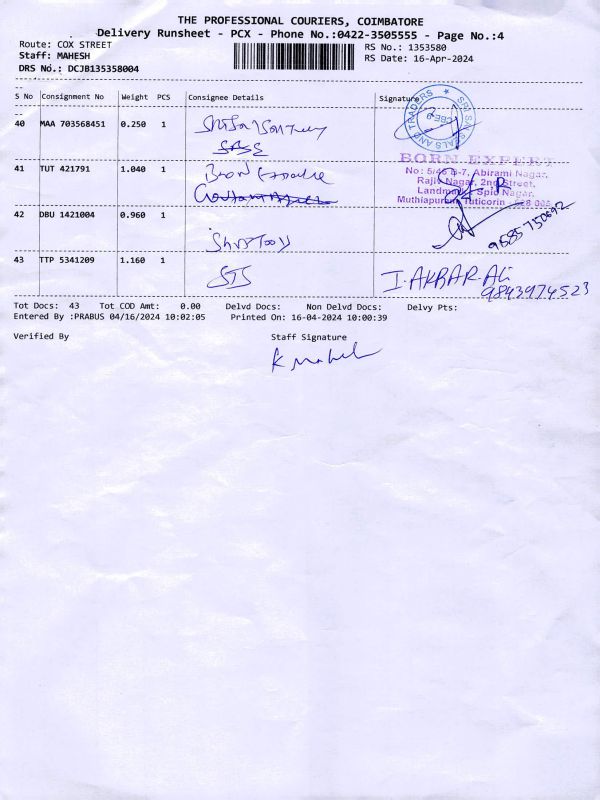 THE PROFESSIONAL COURIERS, COIMBATORE
Delivery Runsheet - PCX - Phone No.:0422-3505555 - Page No.:4
Route: COX STREET
RS No.: 1353580
Staff: MAHESH
RS Date: 16-Apr-2024
DRS No.: DCJB135358004
S No Consignment No Weight PCS Consignee Details Signature
40 MAA 703568451 0.250 1
SRI SAI SEALS AND TRADERS
BORN EXPERT
41 TUT 421791 1.040 1
No: 5/46 B-7, Abirami Nagar,
Rajiv Nagar, 2nd Street,
Landmark Spic Nagar,
Muthiapuram, Tuticorin
42 DBU 1421004 0.960 1
43 TTP 5341209 1.160 1 STS I. AKBAR AG
9843974523
Tot Docs: 43 Tot COD Amt: 0.00 Delvd Docs: Non Delvd Docs: Delvy Pts:
Entered By :PRABUS 04/16/2024 10:02:05 Printed On: 16-04-2024 10:00:39
Verified By Staff Signature